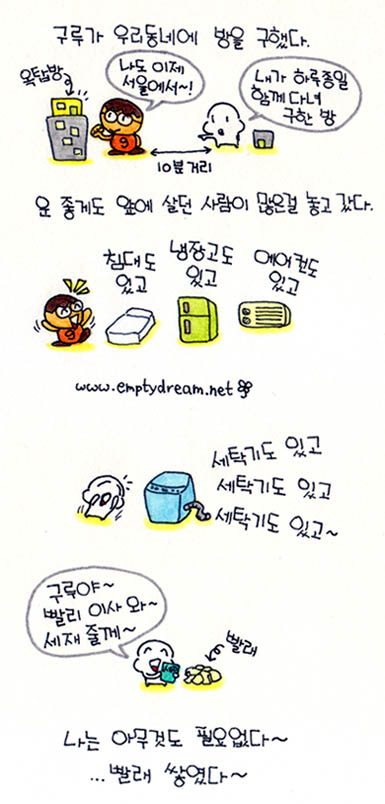 구루가 우리동네에 방을 구했다.
옥탑방
나도 이제
서울에서~!
내가 하루종일
함께 다녀
구한 방
9
10분거리
운 좋게도 앞에 살던 사람이 많은걸 놓고 갔다.
침대도
있고
냉장고도
있고
에어컨도
있고
9
www.emptydream.net
세탁기도 있고
세탁기도 있고
세탁기도 있고~
구루야~
빨리 이사 와~
세재 줄께~
빨래
나는 아무것도 필요없다~
...빨래 쌓였다~